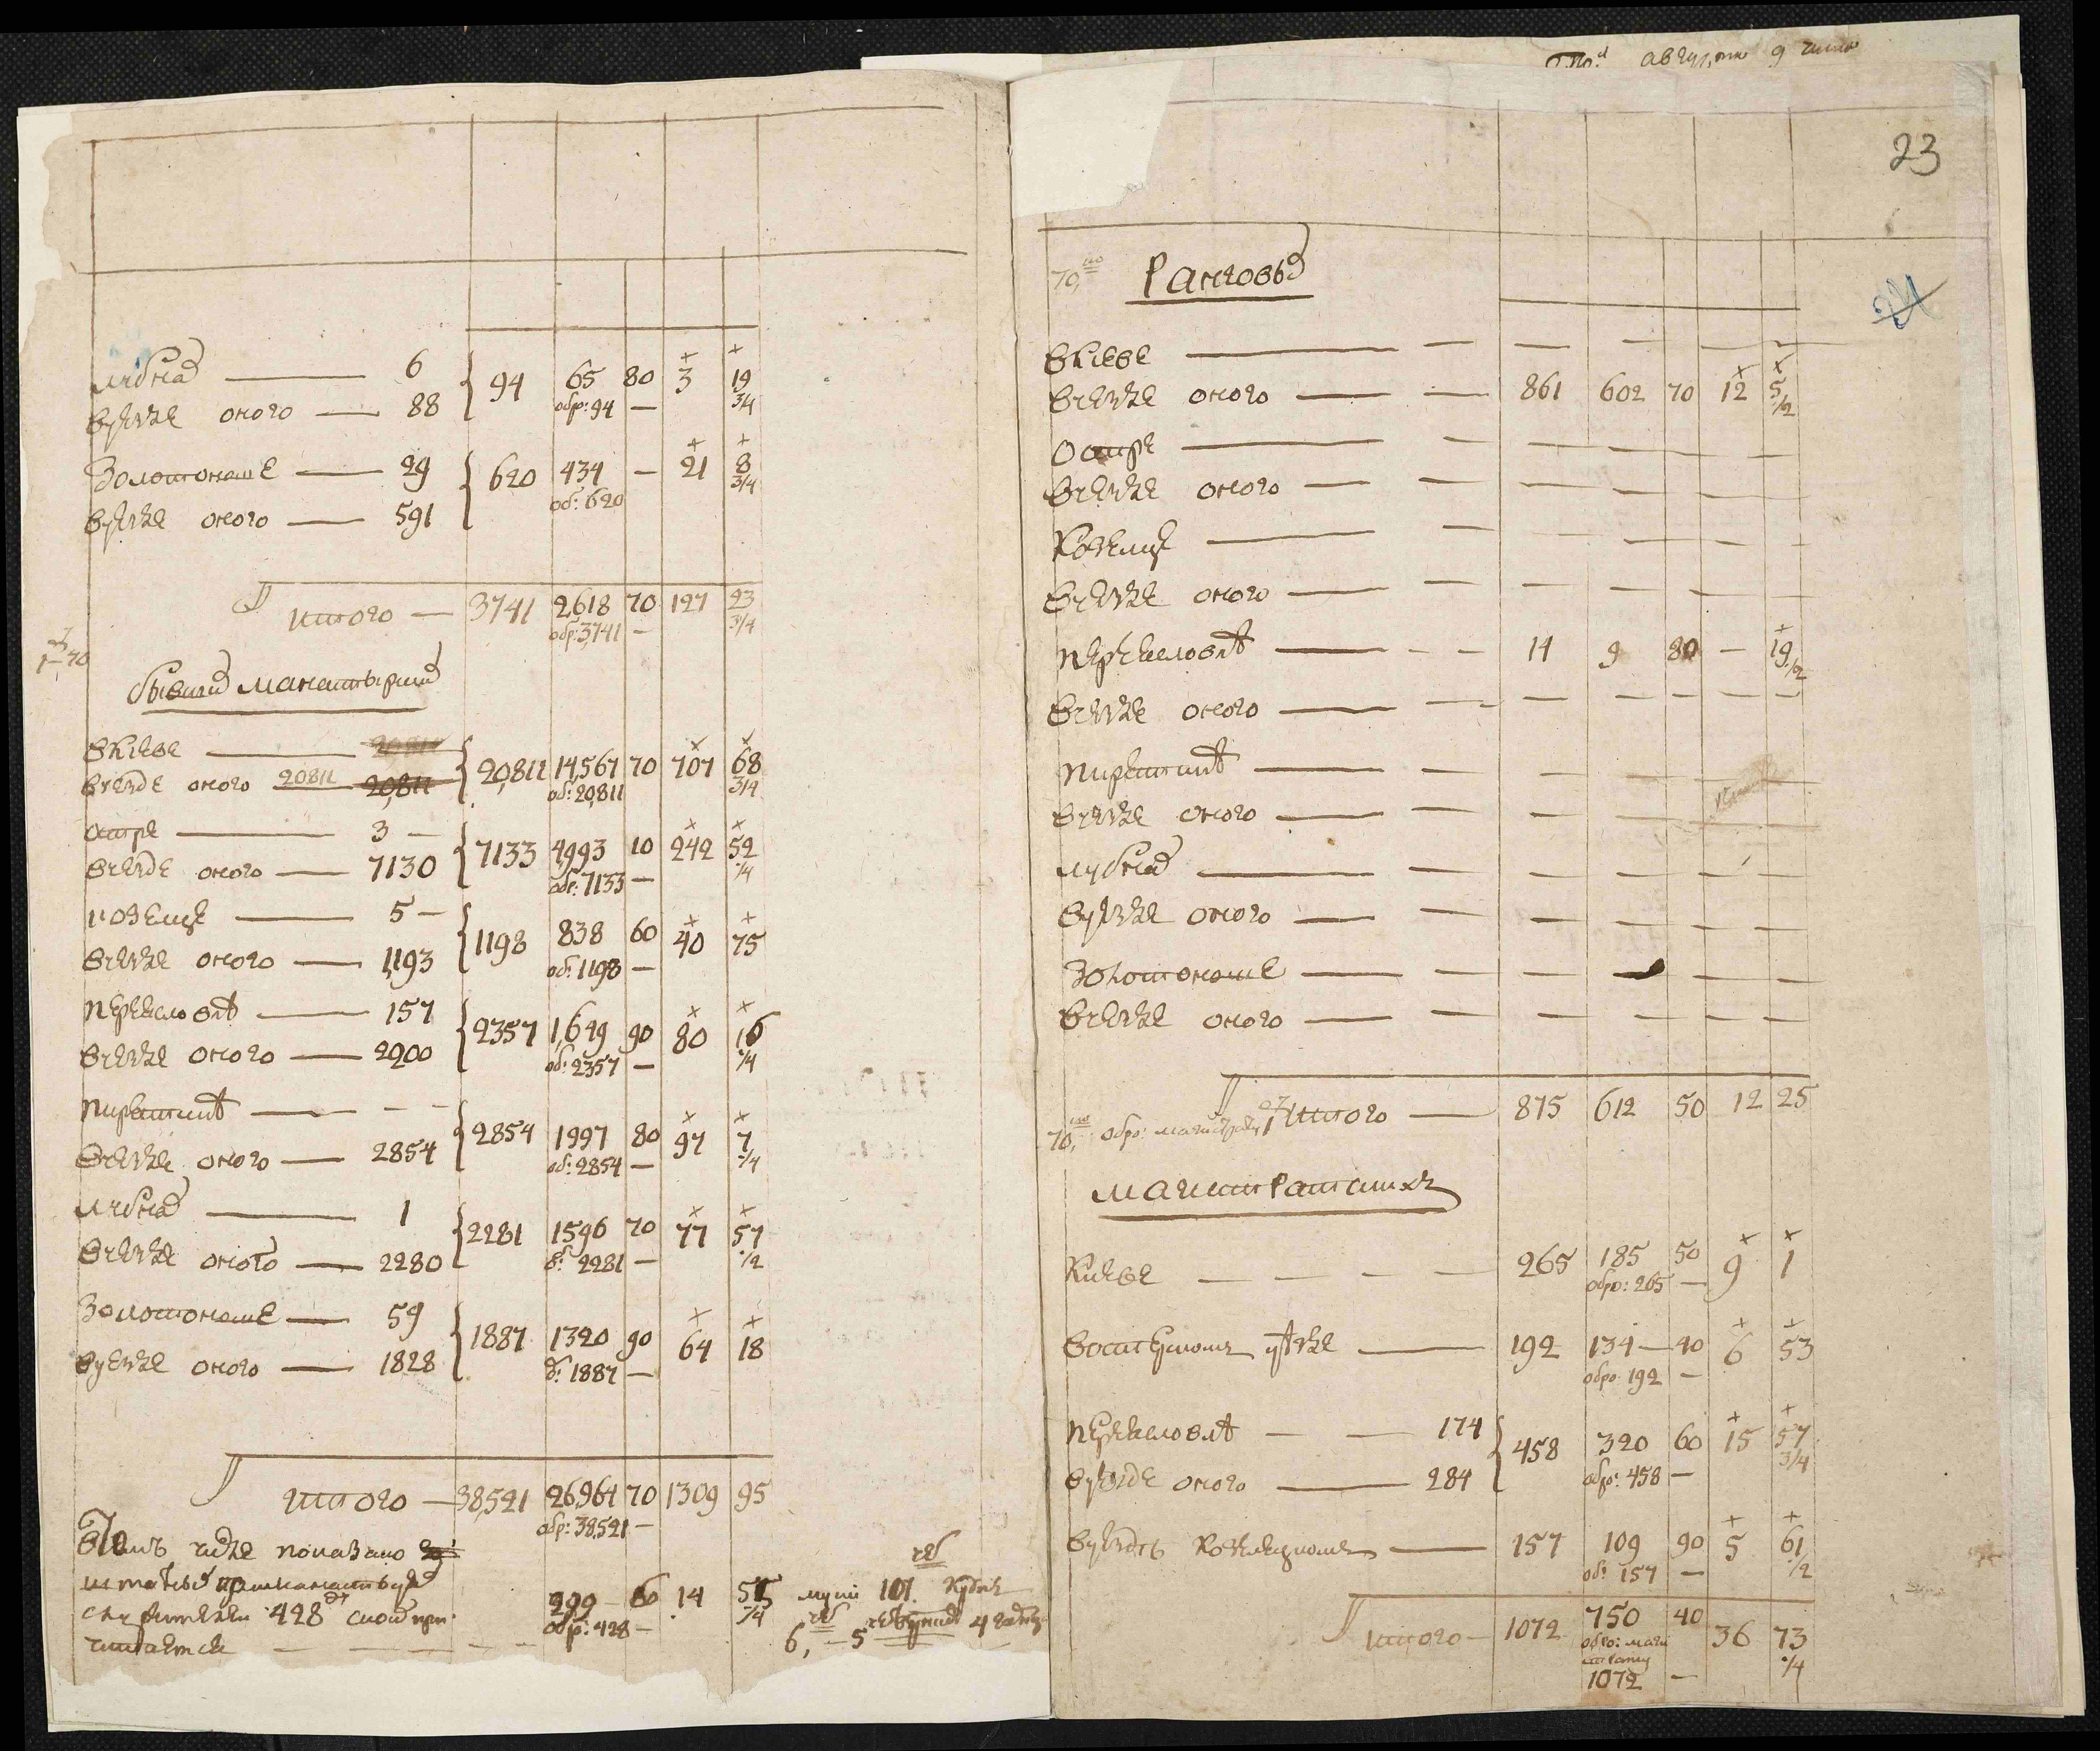 августа 9
23
24
Лубнах — 6 { 94 | 65 | 80 | 3 | 19 3/4
в уезде оного — 88 обр: 94 —
Золотоноше — 29 { 620 | 434 | — | 21 | 8 3/4
в уезде оного — 591 об: 620
Итого — 3741 | 2618 | 70 | 127 | 23 3/4
обр: 3741 —
1—70
бывших манастырских
в Киеве —
в уезде оного 20811 20,811 { 20,811 | 14,567 | 70 | 707 | 68 3/4
об: 20,811
Остре — 3 — { 7133 | 4,993 | 10 | 242 | 52 1/4
в уезде оного — 7130 обр: 7133 —
Козелце — 5 — { 1198 | 838 | 60 | 40 | 75
в уезде оного — 1,193 об: 1198 —
Переясловле — 157 { 2357 | 1,649 | 90 | 80 | 16 1/4
в уезде оного — 2200 об: 2357 —
Пирятине — — — { 2854 | 1997 | 80 | 97 | 7 1/4
в уезде оного — 2854 об: 2854 —
Лубнах — 1 { 2281 | 1596 | 70 | 77 | 57 1/2
в уезде оного — 2280 об: 2281 —
Золотоноше — 59 { 1887 | 1320 | 90 | 64 | 18
в уезде оного — 1828 об: 1887 —
Итого — 38,521 | 26,964 | 70 | 1309 | 95
обр: 38,521 —
в том числе показано
служителей 428
299 — 60 | 14 | 55 1/4
обр: 428 —
101.
6, — 5
70, Ранговых
в Киеве — — — — — —
в уезде оного — — 861 | 602 | 70 | 12 | 5 1/2
Остре — — — — — —
в уезде оного — — — — — —
Козелце — — — — — —
в уезде оного — — — — — —
Переясловле — — — 14 | 9 | 80 | — | 19 1/2
в уезде оного — — — — — —
Пирятине — — — — — —
в уезде оного — — — — — —
Лубнах — — — — — —
в уезде оного — — — — — —
Золотоноше — — — — — —
в уезде оного — — — — — —
Итого — 875 | 612 | 50 | 12 | 25
70, обро:
магистратских
Киеве — — — — 265 | 185 | 50 | 9 | 1
обро: 265 —
в Остерском уезде — 192 | 134 — 40 | 6 | 53
обро 192 —
Переясловле — — 174 { 458 | 320 | 60 | 15 | 57 3/4
в уезде оного — 284 обро: 458 —
в уезде Козелецком — 157 | 109 | 90 | 5 | 61 1/2
об: 157 —
Итого — 1072 | 750 | 40 | 36 | 73 1/4
обро: маги
страту
1072 —